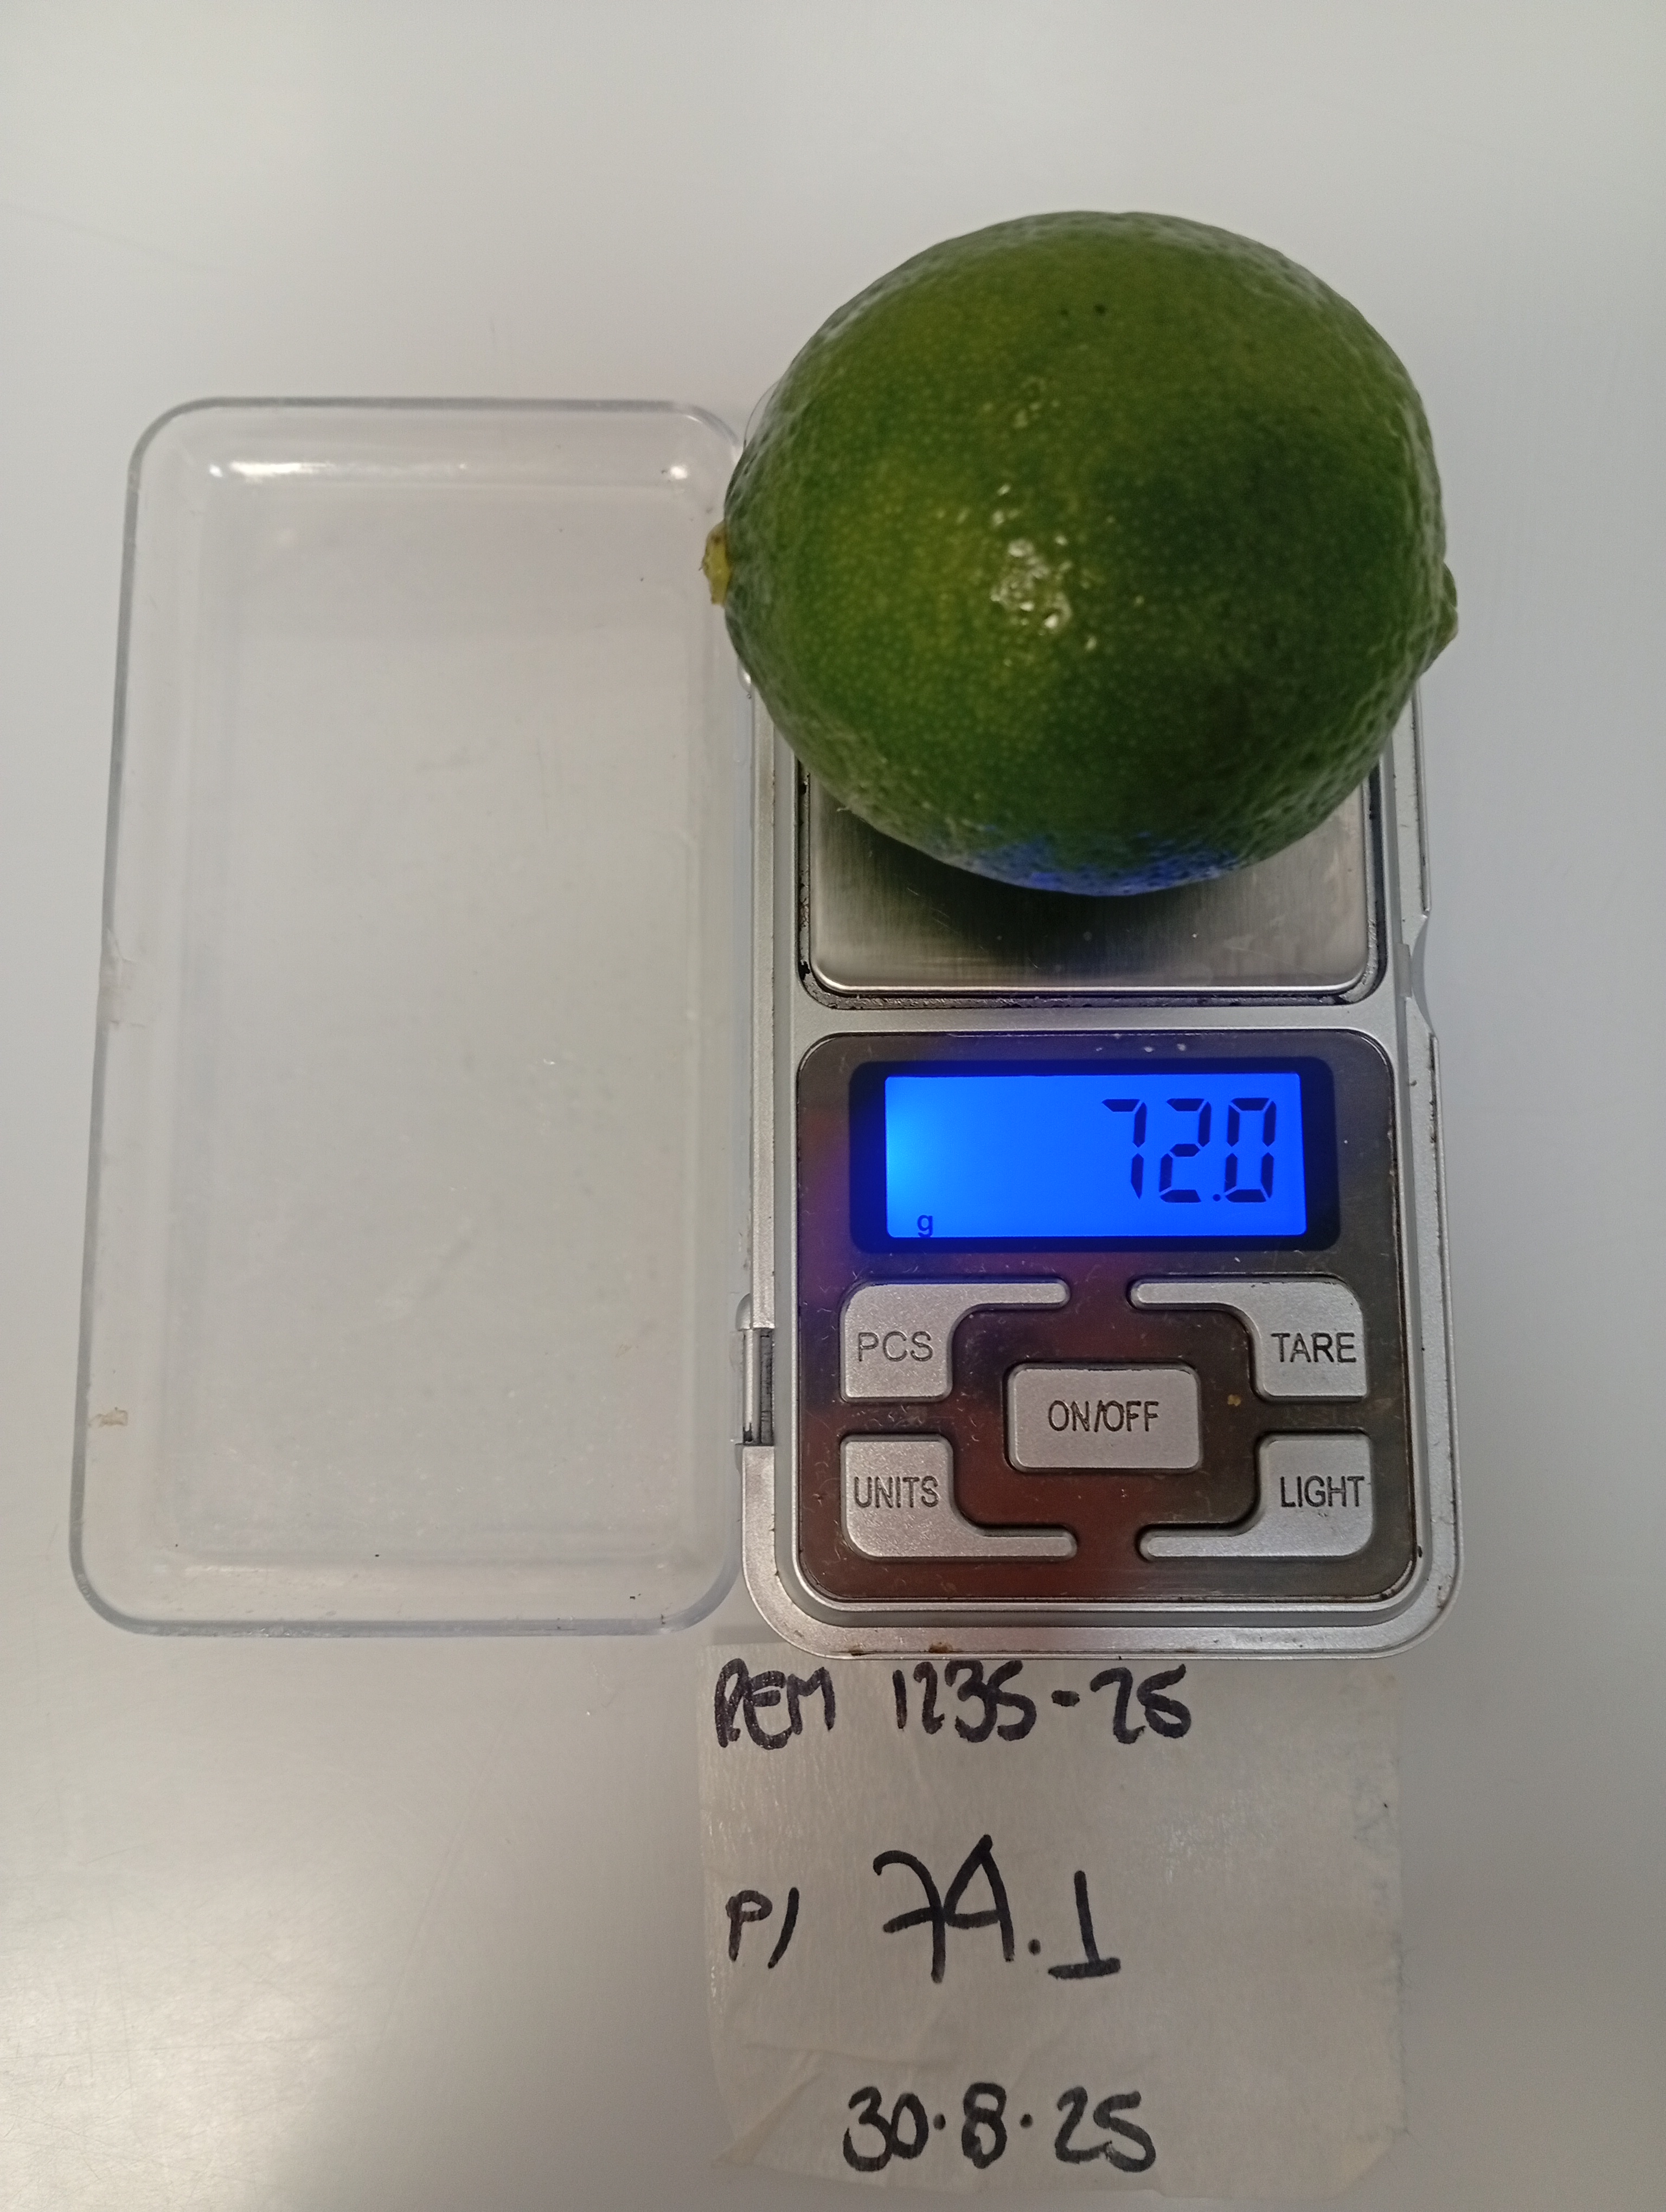 72.0
g
PCS
TARE
ON/OFF
UNITS
LIGHT
REM 1235-25
P) 74.1
30.8.25